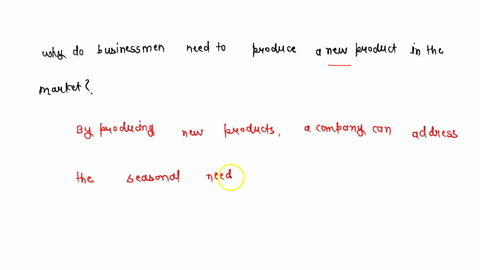 why do businessmen need to produce a new product in the
market?
By producing new products, a company can address
the seasonal need